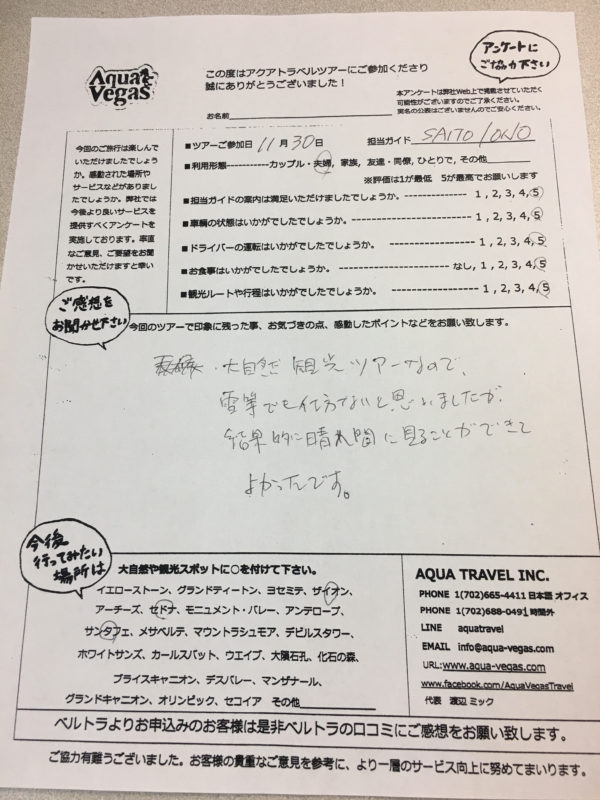 Aqua Vegas
この度はアクアトラベルツアーにご参加くださり
誠にありがとうございました！
アンケートに
ご協力下さい
お名前
本アンケートは弊社Web上で掲載させていただく
可能性がございますのでご了承ください。
実名の公表はございませんのでご安心ください。
今回のご旅行は楽しんで
いただけましたでしょう
か。感動された場所や
サービスなどがありまし
たでしょうか。弊社では
今後より良いサービスを
提供すべくアンケートを
実施しております。率直
なご意見、ご要望をお聞
かせいただけますと幸い
です。
■ツアーご参加日 11月30日 担当ガイド SAITO / ONO
■利用形態-----------カップル・夫婦, 家族, 友達・同僚, ひとりで, その他
※評価は1が最低 5が最高でお願いします
■担当ガイドの案内は満足いただけましたでしょうか。 ---------------- 1, 2, 3, 4, 5
■車輌の状態はいかがでしたでしょうか。 ------------------------- 1, 2, 3, 4, 5
■ドライバーの運転はいかがでしたでしょうか。 ------------------ 1, 2, 3, 4, 5
■お食事はいかがでしたでしょうか。 ---------------------- なし, 1, 2, 3, 4, 5
■観光ルートや行程はいかがでしたでしょうか。 ------------------ 1, 2, 3, 4, 5
ご感想を
お聞かせ下さい
今回のツアーで印象に残った事、お気づきの点、感動したポイントなどをお願い致します。
・大自然 観光ツアーなので、
雪等でも仕方ないと思いましたが、
結果的に晴れ間に見ることができて
よかったんです。
今後
行ってみたい
場所は
大自然や観光スポットに○を付けて下さい。
イエローストーン、グランドティートン、ヨセミテ、ザイオン、
アーチーズ、セドナ、モニュメント・バレー、アンテロープ、
サンタフェ、メサベルデ、マウントラシュモア、デビルスタワー、
ホワイトサンズ、カールスバット、ウエイブ、大隕石孔、化石の森、
ブライスキャニオン、デスバレー、マンザナール、
グランドキャニオン、オリンピック、セコイア その他
AQUA TRAVEL INC.
PHONE 1(702)665-4411 日本語 オフィス
PHONE 1(702)688-0491 時間外
LINE aquatravel
EMAIL info@aqua-vegas.com
URL:www.aqua-vegas.com
www.facebook.com/AquaVegasTravel
代表 渡辺 ミック
ベルトラよりお申込みのお客様は是非ベルトラの口コミにご感想をお願い致します。
ご協力有難うございました。お客様の貴重なご意見を参考に、より一層のサービス向上に努めてまいります。